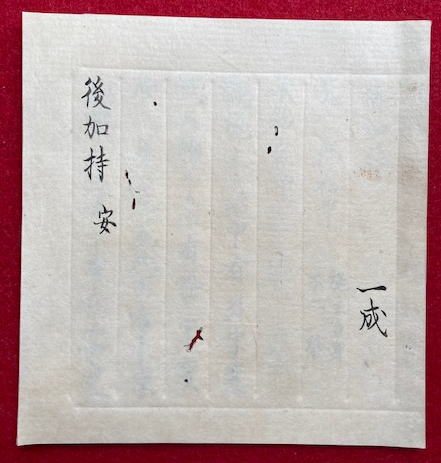 一成
後加持 安